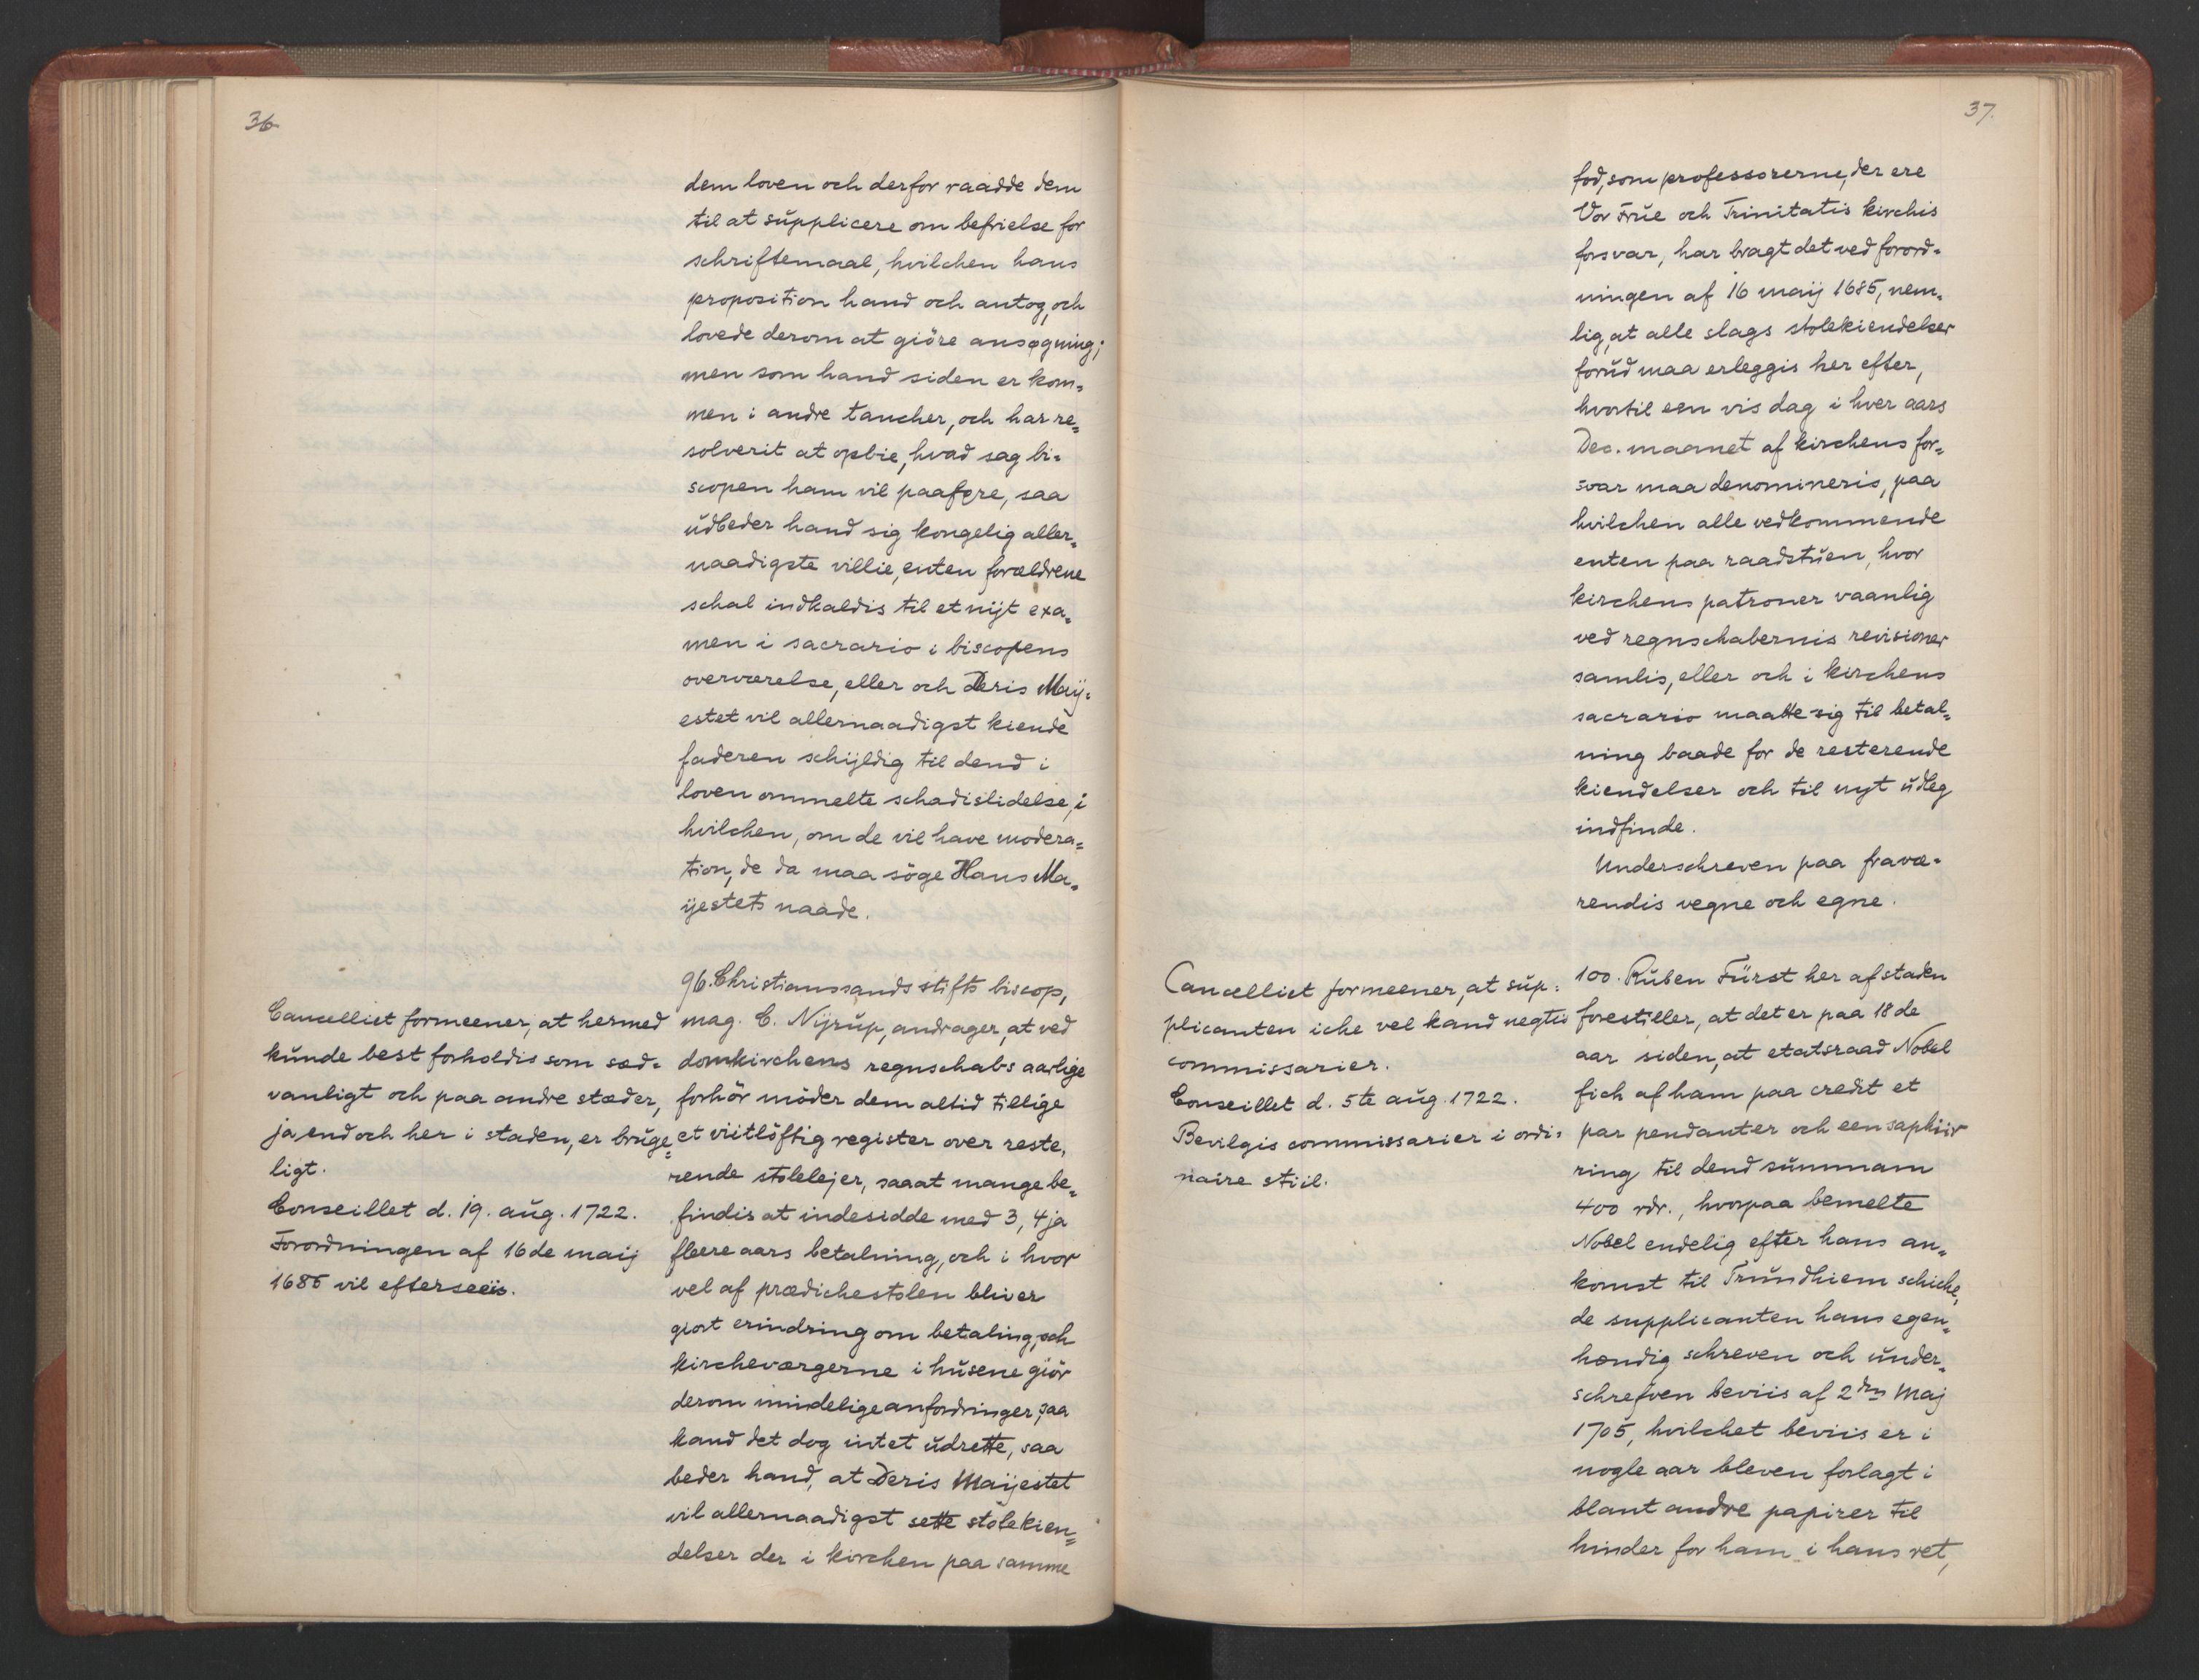 36
dem loven och derfor raadde dem
til at sŭpplicere om befrielse for
schriftemaal, hvilchen hans
proposition hand och antog, och
lovede derom at giöre ansøgning;
men som hand siden er kom=
men i andre tancher, och har re=
solverit at opbie, hvad sag bi=
scopen ham vil paaføre, saa
ŭdbeder hand sig kongelig aller=
naadigste villie, enten forældrene
schal indkaldis til et nijt exa=
men i sacrario i biscopens
overværelse, eller och Deris Maij=
estet vil allernaadigst kiende
faderen schijldig til dend i
loven ommelte schadislidelse, i
hvilchen, om de vil have modera=
tion, de da maa söge Hans Ma=
ijestets naade.
Cancelliet formeener, at hermed
kŭnde best forholdis som sæd=
vanligt och paa andre stæder,
ja end och her i staden, er brŭge=
ligt.
Conseillet d. 19. aŭg. 1722.
Forordningen af 16de maij
1685 vil efterseeis.
96. Christianssands stifts biscop,
mag. C. Nijrŭp, andrager, at ved
domkirchens regnschabs aarlige
forhör möder dem altid tillige
et viitlöftig register over reste=
rende stolelejer, saa at mange be=
findis at indesidde med 3, 4 ja
fleere aars betalning, och i hvor
vel af prædichestolen bliver
giort erindring om betaling, och
kircheværgerne i hŭsene giör
derom mindelige anfordringer, saa
kand det dog intet ŭdrette, saa
beder hand, at Deris Maijestet
vil allernaadigst sette stolekien=
delser der i kirchen paa samme
37.
fod, som professorerne, der ere
Vor Frŭe och Trinitatis kirchis
forsvar, har bragt det ved forord=
ningen af 16 maij 1685, nem=
lig, at alle slags stolekiendelser
forŭd maa erleggis her efter,
hvortil een vis dag i hver aars
Dec. maanet af kirchens for=
svar maa denomineris, paa
hvilchen alle vedkommende
enten paa raadstŭen, hvor
kirchens patroner vaanlig
ved regnschabernis revisioner
samlis, eller och i kirchens
sacrario maatte sig til betal=
ning baade for de resterende
kiendelser och til nyt ŭdleg
indfinde.
Underschreven paa fravæ=
rendis vegne och egne.
Cancelliet formeener, at sŭp=
plicanten iche vel kand negtis
commissarier.
Conseillet d. 5te aŭg. 1722.
Bevilgis commissarier i ordi=
naire stiil.
100. Rŭben Fürst her af staden
forestiller, at det er paa 18de
aar siden, at etatsraad Nobel
fich af ham paa credit et
par pendanter och een saphiir
ring til dend sŭmmam
400 rdr., hvorpaa bemelte
Nobel endelig efter hans an=
komst til Trŭndhiem schiche=
de supplicanten hans egen=
hændig schreven och ŭnder=
schrefven beviis af 2den Maj
1705, hvilchet beviis er i
nogle aar bleven forlagt i
blant andre papirer til
hinder for ham i hans ret,